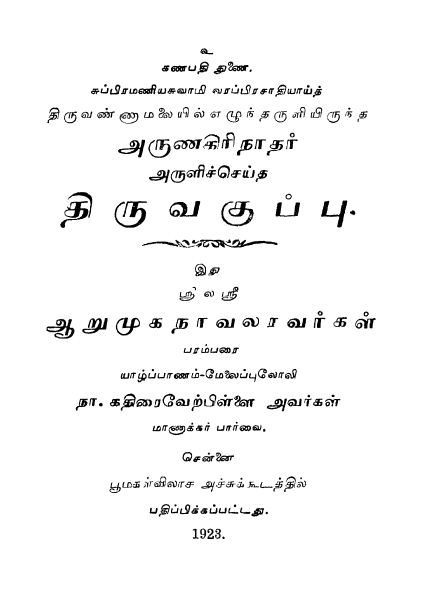 உ
கணபதி துணை.
சுப்பிரமணியசுவாமி வரப்பிரசாதியாய்த்
திருவண்ணாமலையில் எழுந்தருளியிருந்த
அருணகிரிநாதர்
அருளிச்செய்த
திருவகுப்பு.
இது
ஸ்ரீ ல ஸ்ரீ
ஆறுமுகநாவலரவர்கள்
பரம்பரை
யாழ்ப்பாணம்-மேலைப்புலோலி
நா. கதிரைவேற்பிள்ளை அவர்கள்
மாணாக்கர் பார்வை.
சென்னை
பூமகள்விலாச அச்சுக்கூடத்தில்
பதிப்பிக்கப்பட்டது.
1923.